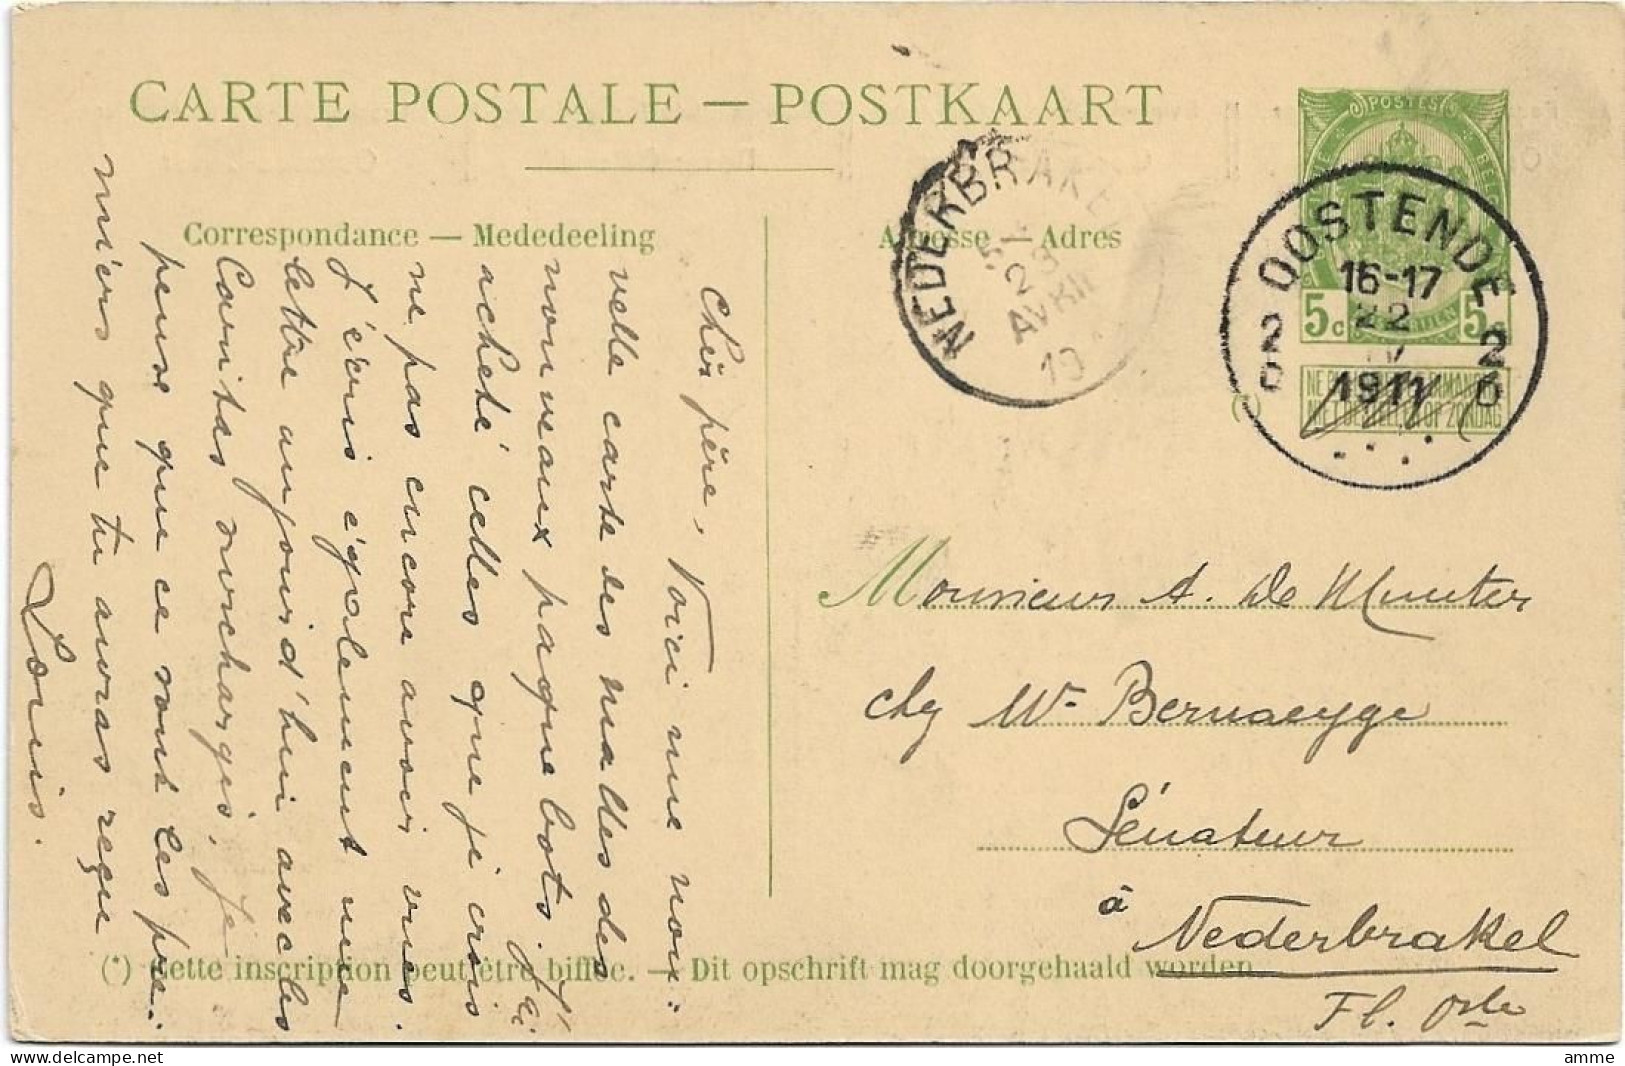 CARTE POSTALE — POSTKAART
Correspondance — Mededeeling
Adresse — Adres
POSTES
5c
5c
OOSTENDE
16-17
22
IV
1911
2D
2D
NEDERBRAKEL
23
AVRIL
19
NIET BESTELLEN OP ZONDAG
Cher père, Voici une nou-
velle carte des malles des
nouveaux paquebots. J'ai
acheté celles que je crois
ne pas encore avoir vues.
J'écris également une
lettre aujourd'hui avec les
Caritas surchargés. Je
pense que ce sont les pre-
miers que tu auras reçu
Louis.
Monsieur A. De Munter
chez Mr Bernaeyge
Sénateur
à Nederbrakel
Fl. Orle
(*) Cette inscription peut être biffée. — Dit opschrift mag doorgehaald worden.
delcampe.net
amme